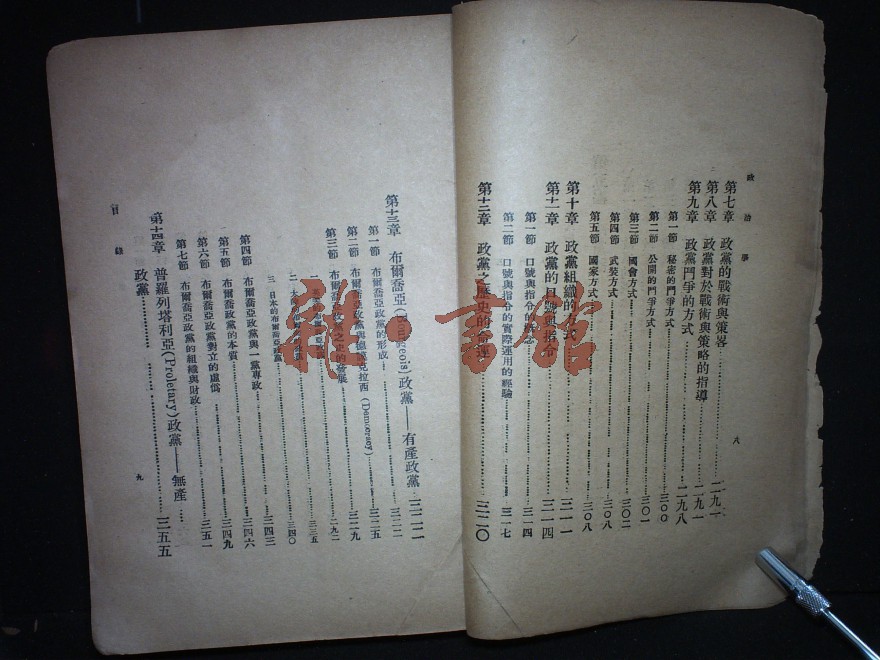 政治學
八
第七章 政黨的戰術與策畧……二九一
第八章 政黨對於戰術與策略的指導……二九一
第九章 政黨鬥爭的方式……二九八
第一節 秘密的鬥爭方式……三〇〇
第二節 公開的鬥爭方式……三〇一
第三節 國會方式……三〇二
第四節 武裝方式……三〇八
第五節 國家方式……三〇八
第十章 政黨組織的方式……三一一
第十一章 政黨的口號與指令……三一四
第一節 口號與指令的概念……三一四
第二節 口號與指令的實際運用的經驗……三一七
第十二章 政黨之歷史的命運……三二〇
第十三章 布爾喬亞(Bourgeois)政黨——有產政黨……三二二
第一節 布爾喬亞政黨的形成……三二二
第二節 布爾喬亞政黨與德謨克拉西(Democracy)……三二五
第三節 布爾喬亞政黨之史的發展……三二九
一 英國的布爾喬亞政黨……三三五
二 布爾喬亞政黨……三四〇
三 日本的布爾喬亞政黨……三四三
第四節 布爾喬亞政黨與一黨專政……三四六
第五節 布爾喬亞政黨的本質……三四九
第六節 布爾喬亞政黨對立的虛僞……三五一
第七節 布爾喬亞政黨的組織與財政……
第十四章 普羅列塔利亞(Proletary)政黨——無產
政黨……三五五
目錄
九
書館